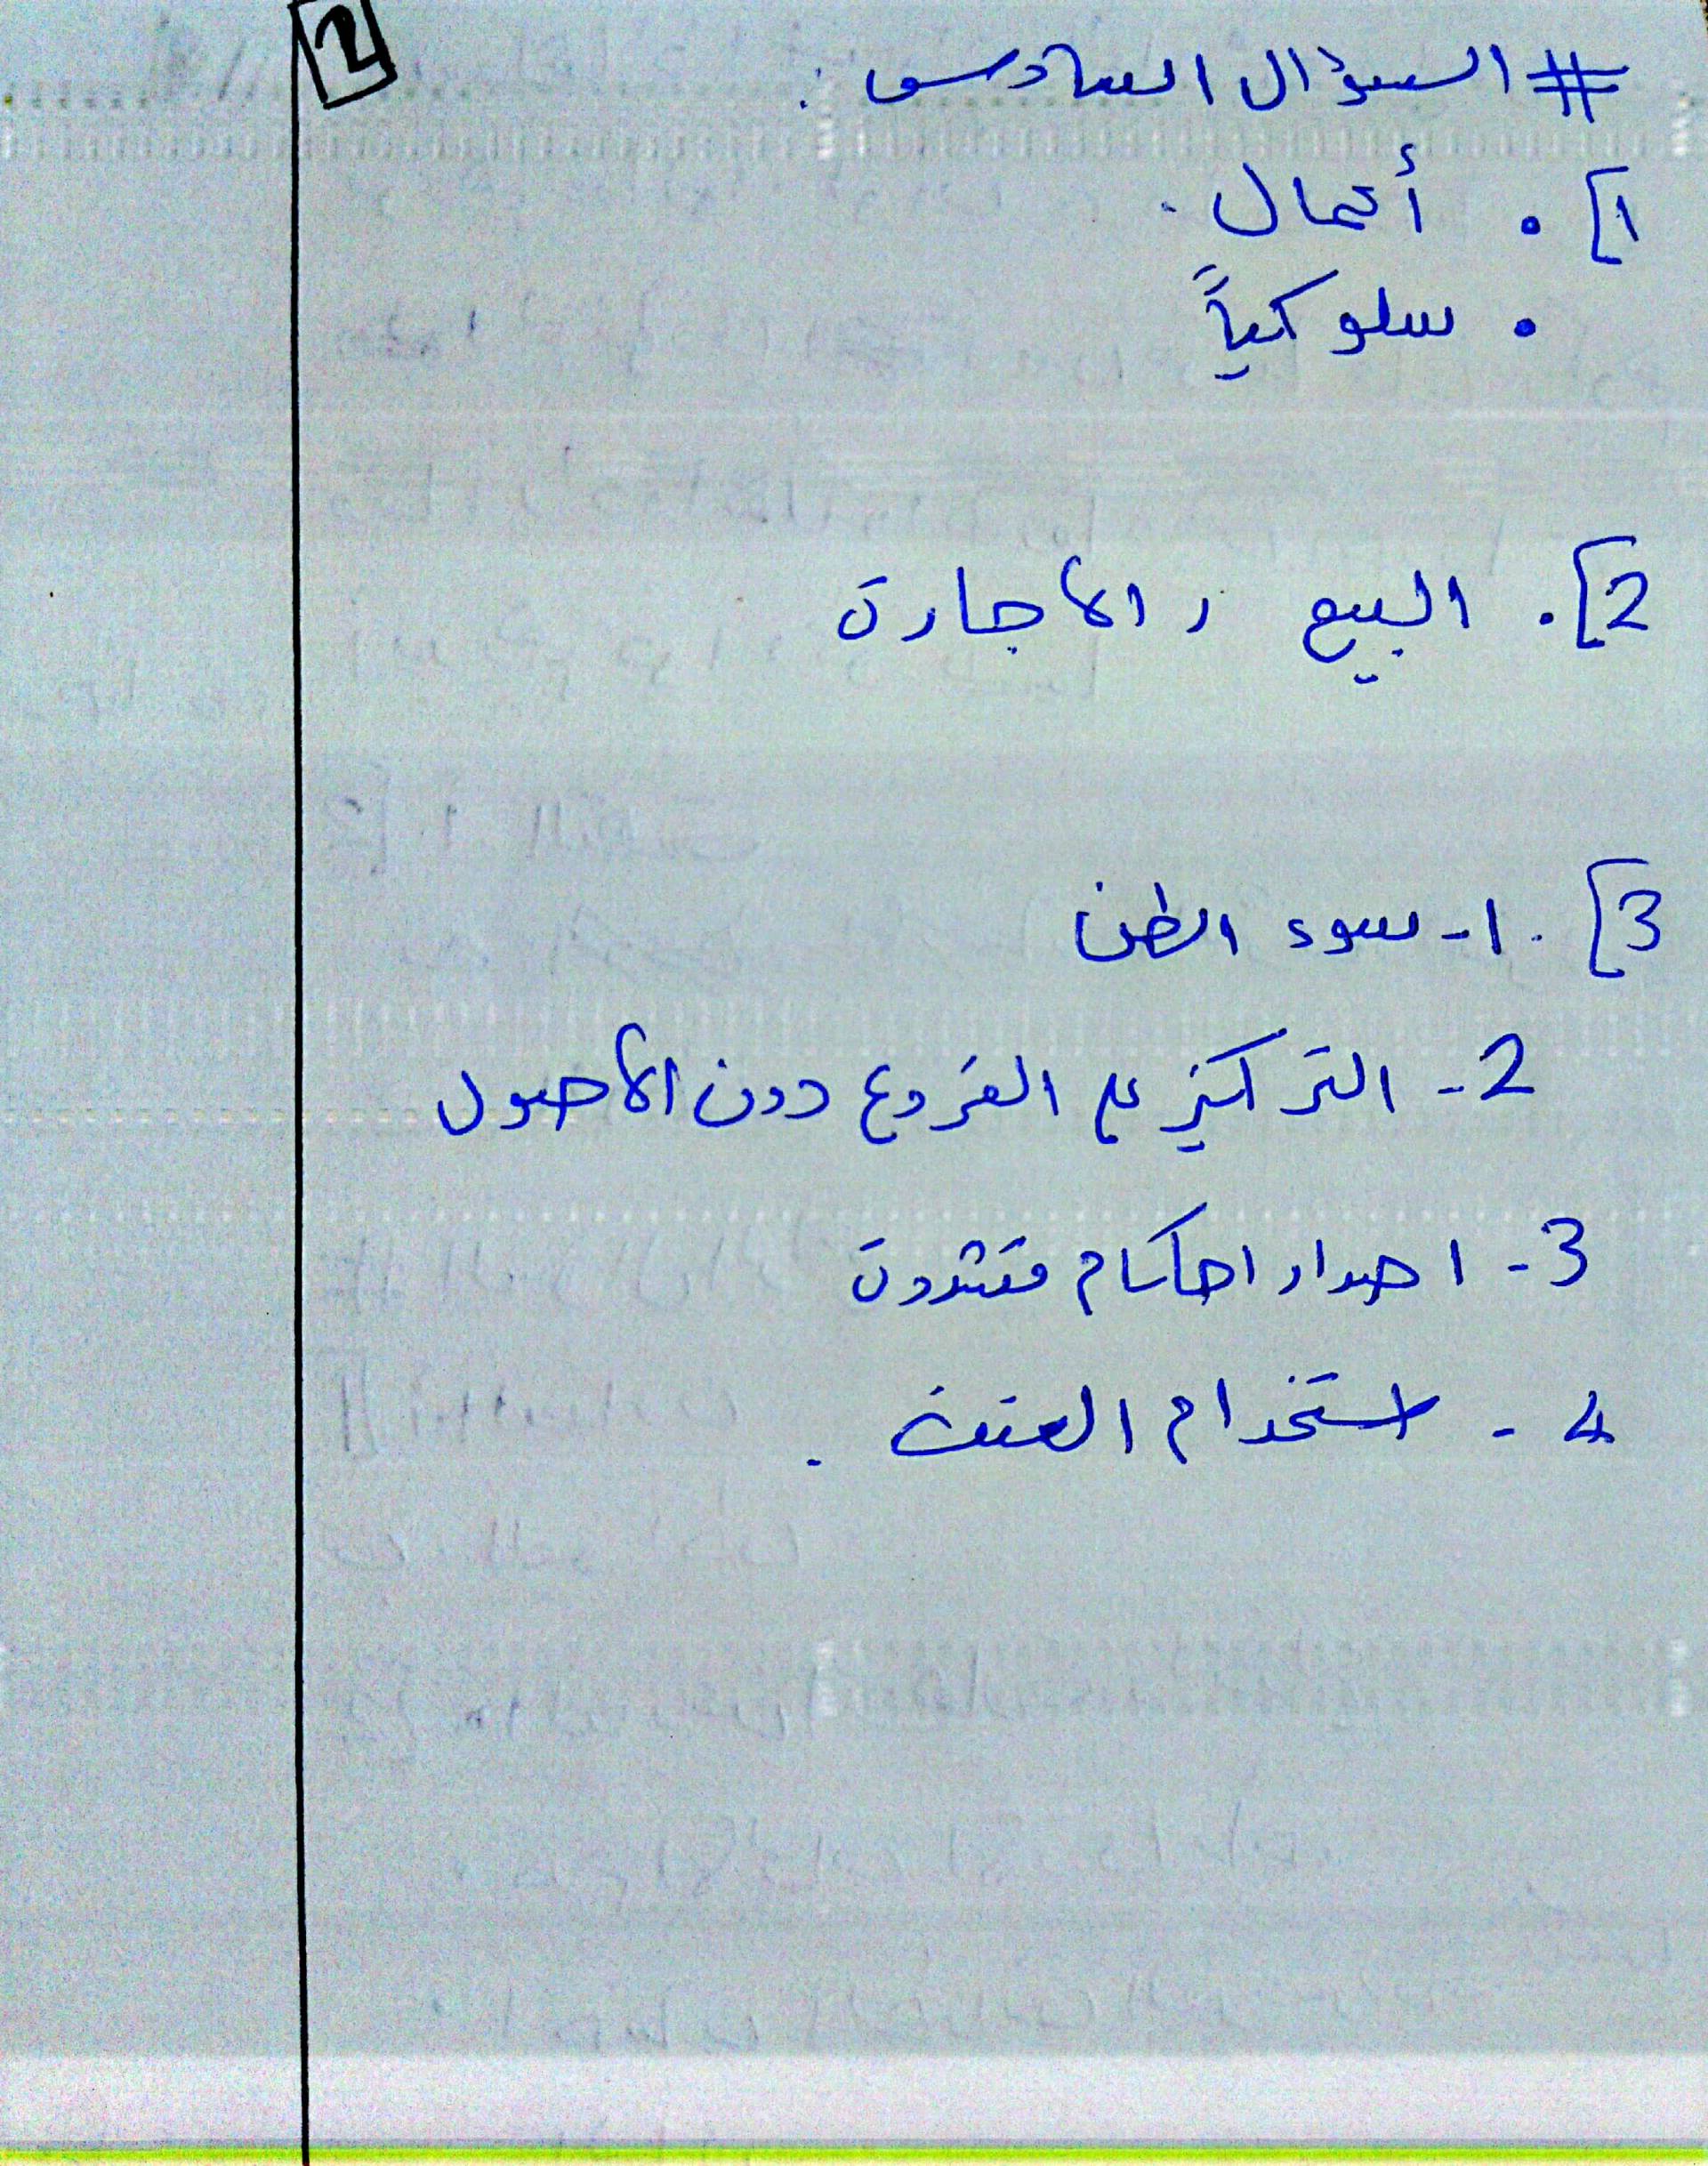 2
# السؤال السادس :
1] • أعمال .
• سلوكياً
2] . البيع , الاجارة
3] . 1- سوء الظن
2- التركيز على الفروع دون الأصول
3- اصدار احكام متشددة
4- استخدام العنف .